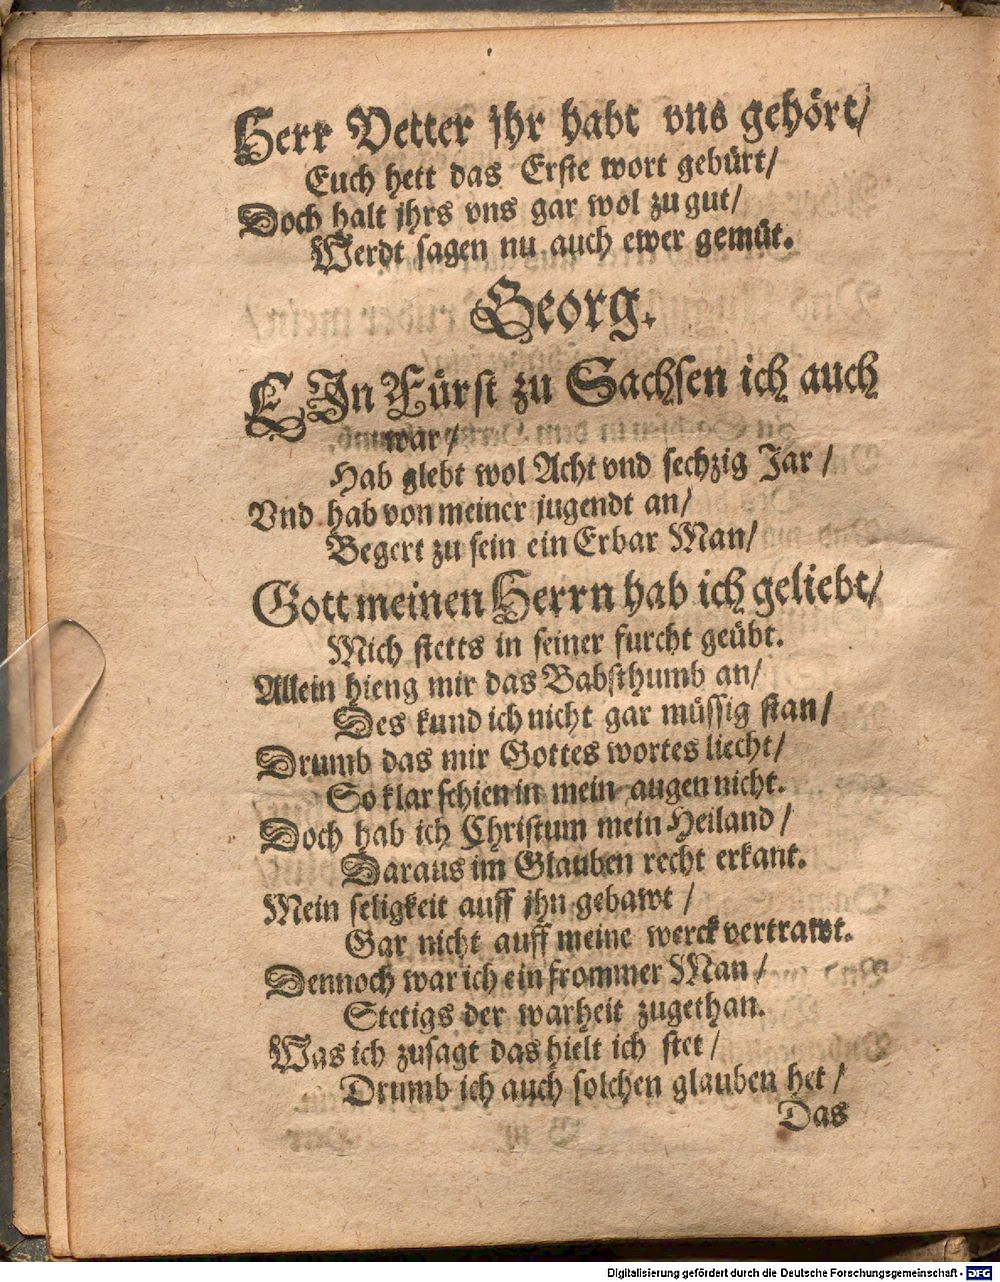 Herr Vetter jhr habt vns gehört/
Euch hett das Erste wort gebürt/
Doch halt jhrs vns gar wol zu gut/
Werdt sagen nu auch ewer gemüt.
Georg.
EIn Fürst zu Sachsen ich auch
war/
Hab glebt wol Acht vnd sechzig Jar/
Vnd hab von meiner jugendt an/
Begert zu sein ein Erbar Man/
Gott meinen Herrn hab ich geliebt/
Mich stetts in seiner furcht geübt.
Allein hieng mir das Babsthumb an/
Des kund ich nicht gar müssig stan/
Drumb das mir Gottes wortes liecht/
So klar schien in mein augen nicht.
Doch hab ich Christum mein Heiland/
Daraus im Glauben recht erkant.
Mein seligkeit auff jhn gebawt/
Gar nicht auff meine werck vertrawt.
Dennoch war ich ein frommer Man/
Stetigs der warheit zugethan.
Was ich zusagt das hielt ich stet/
Drumb ich auch solchen glauben het/
Das
Digitalisierung gefördert durch die Deutsche Forschungsgemeinschaft - DFG